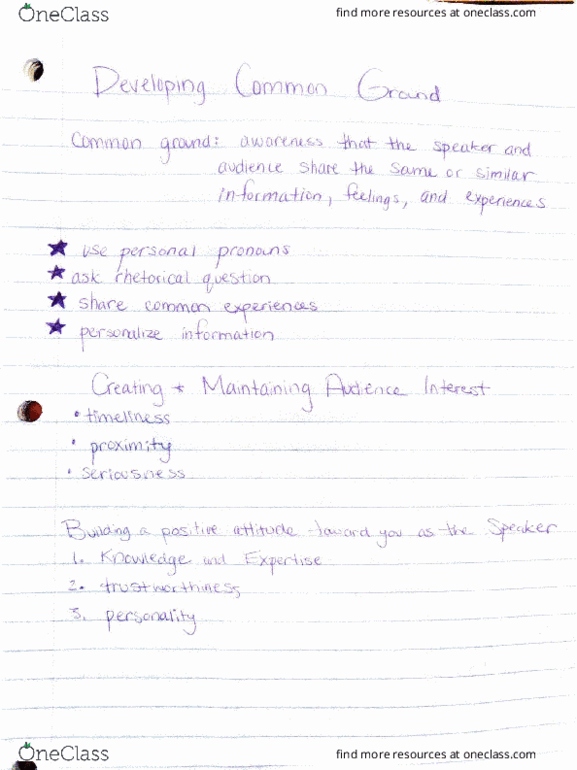 OneClass
find more resources at oneclass.com
Developing Common Ground
Common ground: awareness that the speaker and
audience share the same or similar
information, feelings, and experiences
use personal pronouns
ask rhetorical question
share common experiences
personalize information
Creating + Maintaining Audience Interest
• timeliness
• proximity
• seriousness
Building a positive attitude toward you as the Speaker
1. Knowledge and Expertise
2. trustworthiness
3. personality
OneClass
find more resources at oneclass.com